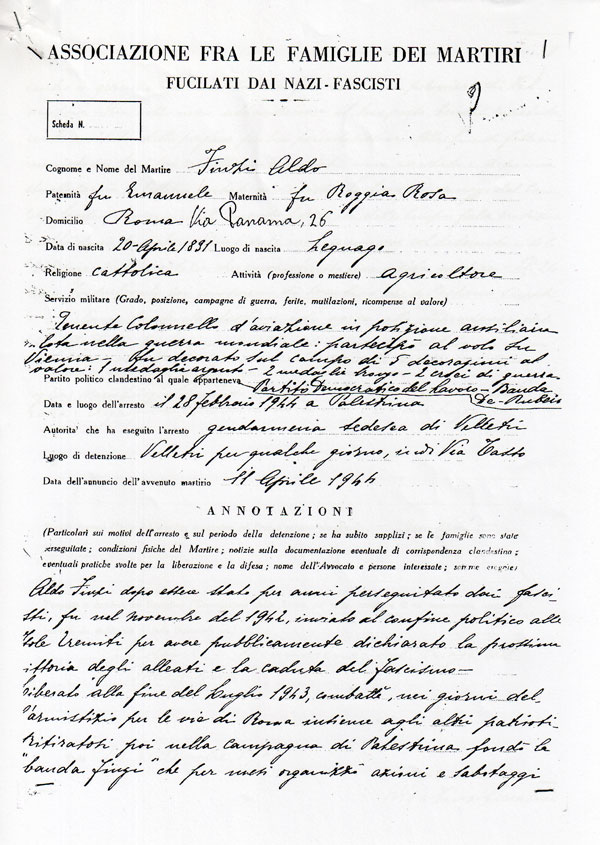 ASSOCIAZIONE FRA LE FAMIGLIE DEI MARTIRI
FUCILATI DAI NAZI-FASCISTI
Scheda N.
Cognome e Nome del Martire Finzi Aldo
Paternità fu Emanuele Maternità fu Roggia Rosa
Domicilio Roma Via Panama, 26
Data di nascita 20-Aprile 1891 Luogo di nascita Legnago
Religione Cattolica Attività (professione o mestiere) agricoltore
Servizio militare (Grado, posizione, campagne di guerra, ferite, mutilazioni, ricompense al valore)
Tenente Colonnello d'aviazione in posizione ausiliaria
lota nella guerra mondiale: partecipò al volo su
Vienna - fu decorato sul campo di 5 decorazioni al
valore: 1 medaglia argento - 2 medaglie bronzo - 2 croci di guerra
Partito politico clandestino al quale apparteneva Partito Democratico del Lavoro - Banda
De-Rubeis
Data e luogo dell'arresto il 28 febbraio 1944 a Palestrina
Autorità che ha eseguito l'arresto gendarmeria tedesca di Velletri
Luogo di detenzione Velletri per qualche giorno, indi Via Tasso
Data dell'annuncio dell'avvenuto martirio 11 Aprile 1944
ANNOTAZIONI
(Particolari sui motivi dell'arresto e sul periodo della detenzione; se ha subito supplizi; se le famiglie sono state
perseguitate; condizioni fisiche del Martire; notizie sulla documentazione eventuale di corrispondenza clandestina;
eventuali pratiche svolte per la liberazione e la difesa; nome dell'Avvocato e persone interessate; somme erogate)
Aldo Finzi dopo essere stato per anni perseguitato dai fasci-
sti, fu nel novembre del 1942, inviato al confine politico alle
Isole Tremiti per avere pubblicamente dichiarato la prossima
vittoria degli alleati e la caduta del fascismo -
Liberato alla fine del Luglio 1943, combattè, nei giorni del
l'armistizio per le vie di Roma insieme agli altri patrioti
Ritiratosi poi nella campagna di Palestrina fondò la
"banda Finzi" che per mesi organizzò azioni e sabotaggi